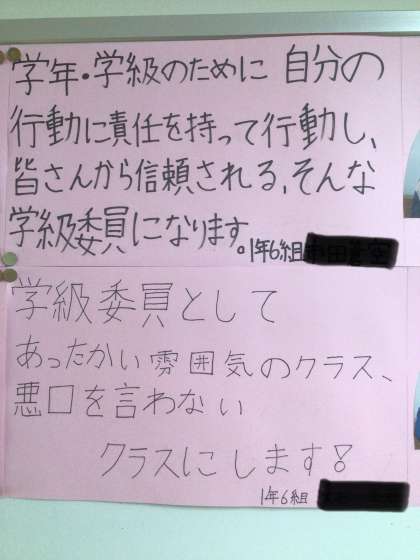 学年・学級のために 自分の
行動に責任を持って行動し、
皆さんから信頼される、そんな
学級委員になります。
1年6組
学級委員として
あったかい雰囲気のクラス、
悪口を言わない
クラスにします!
1年6組